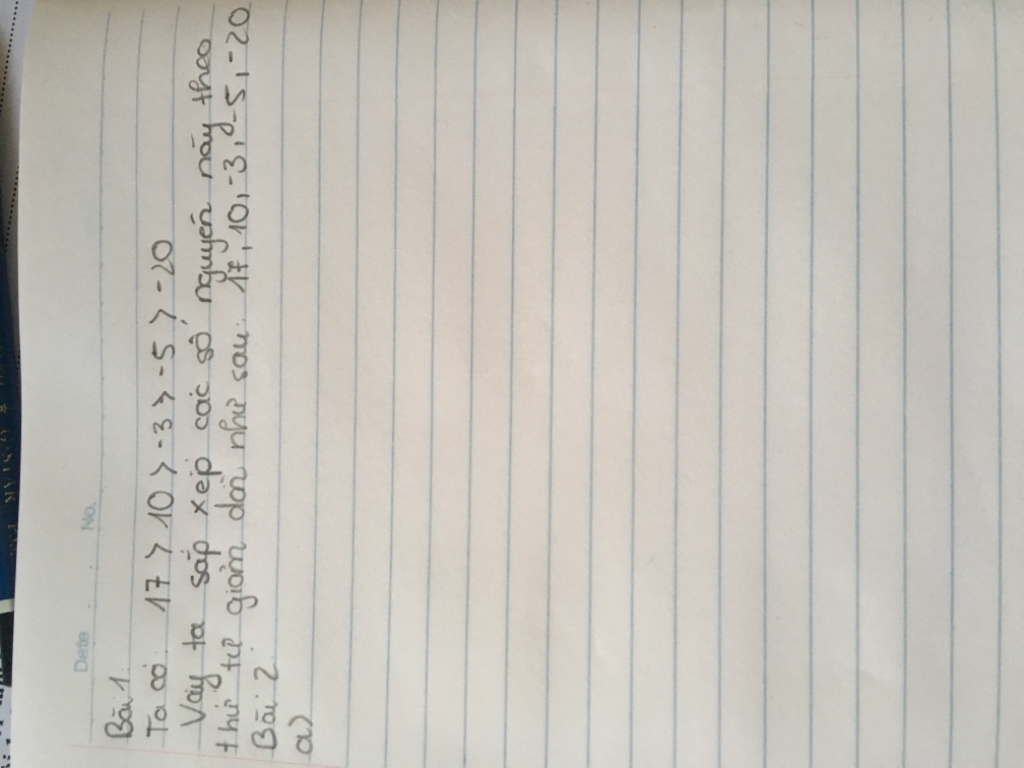 Date No.
Bài 1:
Ta có: 17 > 10 > -3 > -5 > -20
Vậy ta sắp xếp các số nguyên này theo
thứ tự giảm dần như sau: 17, 10, -3, -5, -20
Bài 2
a)